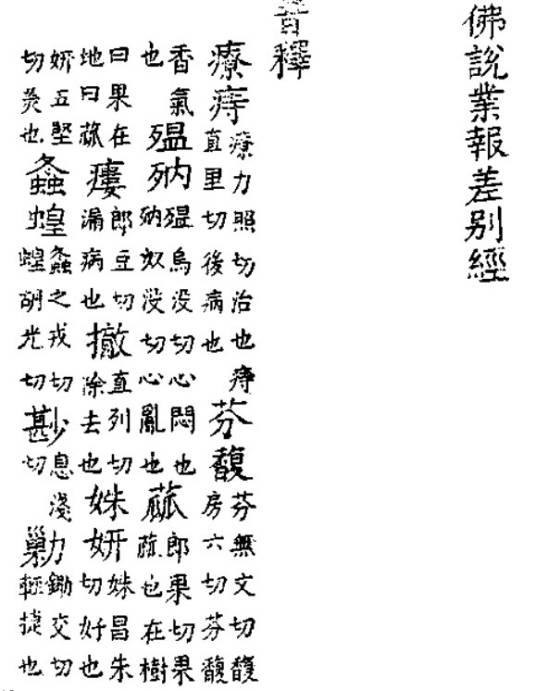 佛說業報差別經
音釋
療痔療力照切治也痔直里切後病也芬馥芬無文切馥房六切芬馥
香氣也殟㱞殟烏没切心悶也㱞奴没切心亂也蓏郎果切果蓏也在樹
曰果在地曰蓏瘻郎豆切漏病也撤直列切除去也姝妍姝昌朱切好也
妍五堅切美也螽蝗螽之戎切蝗胡光切尠息淺切勦鋤交切輕捷也